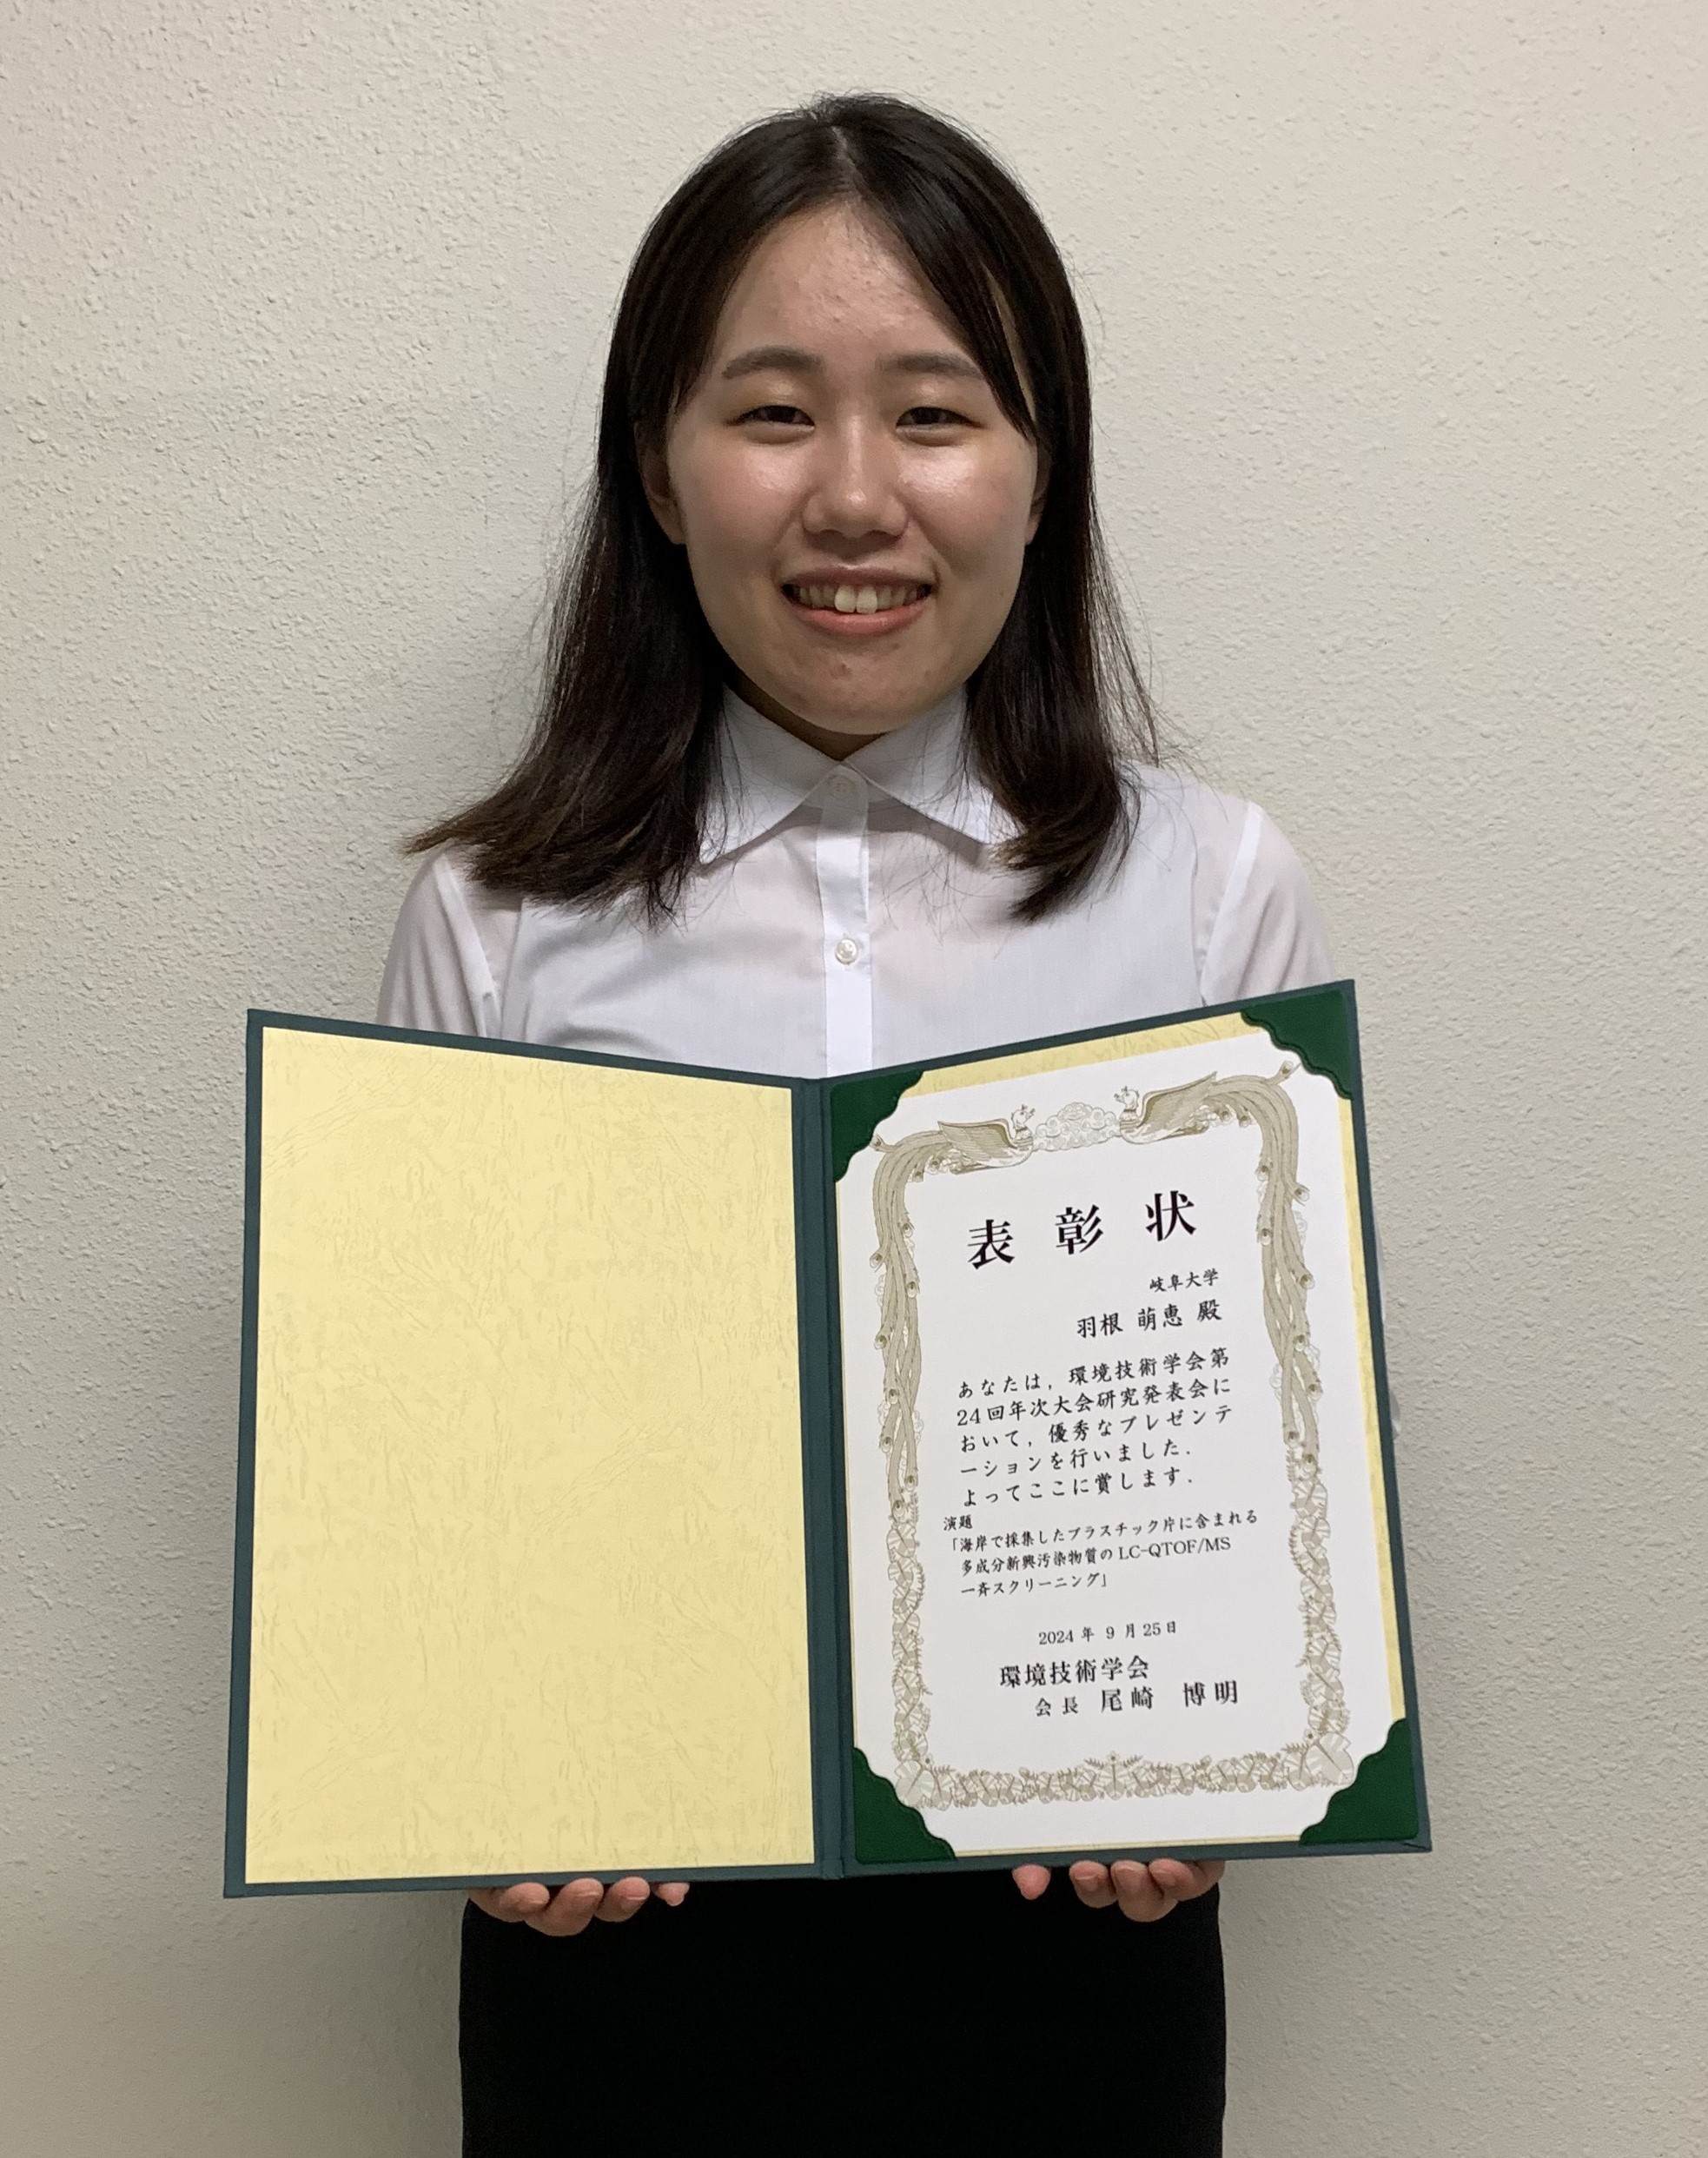 表彰状
岐阜大学
羽根 萌恵 殿
あなたは，環境技術学会第
24回年次大会研究発表会に
おいて，優秀なプレゼンテ
ーションを行いました．
よってここに賞します．
演題
「海岸で採集したプラスチック片に含まれる
多成分新興汚染物質のLC-QTOF/MS
一斉スクリーニング」
2024年 9月25日
環境技術学会
会長 尾崎 博明